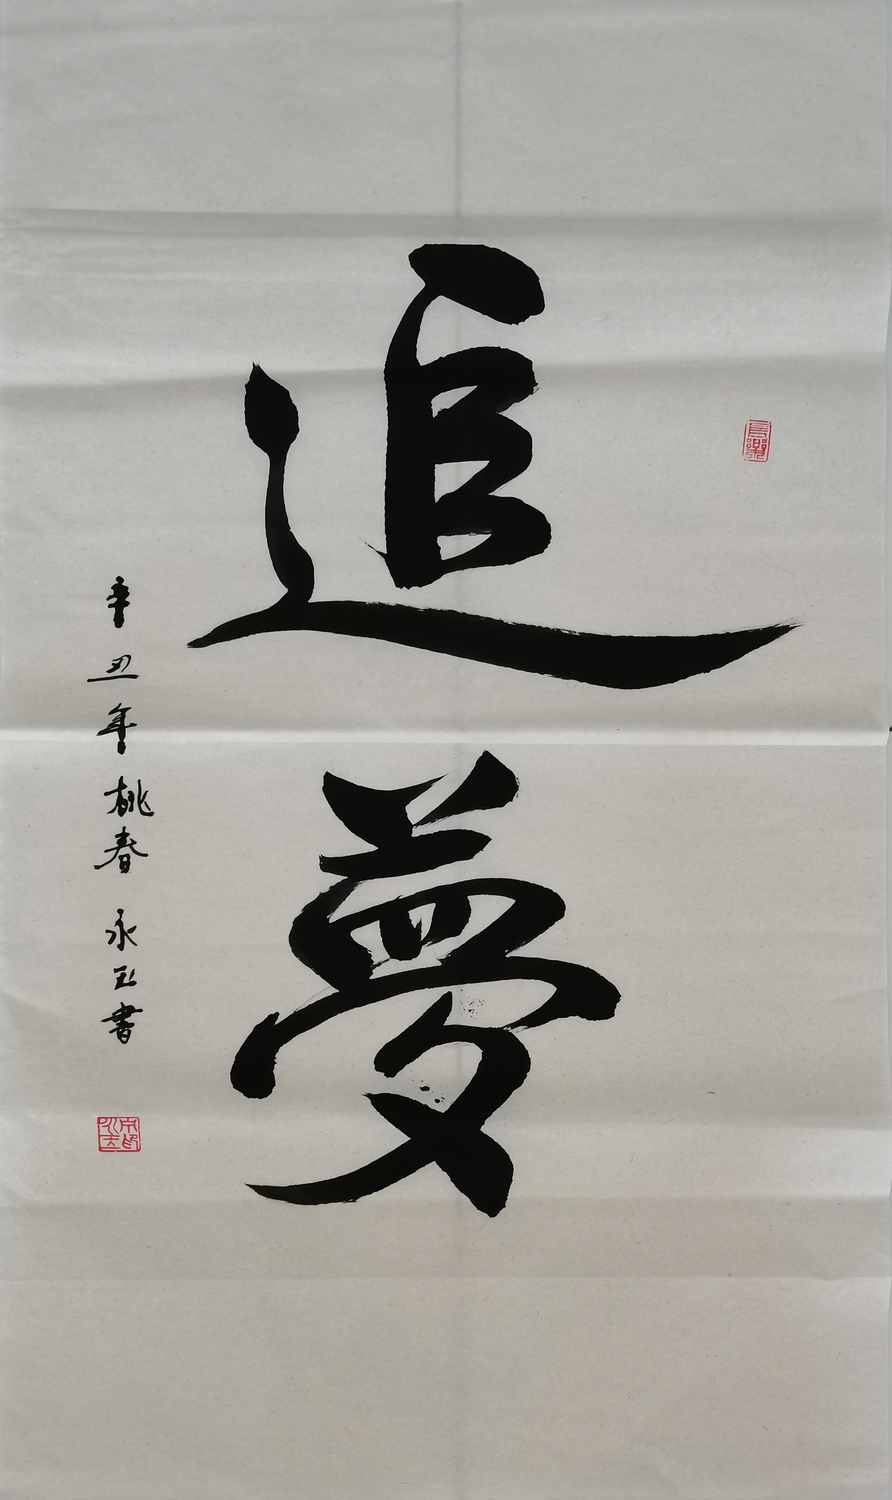 追夢
辛丑年桃春 永玉書
長樂